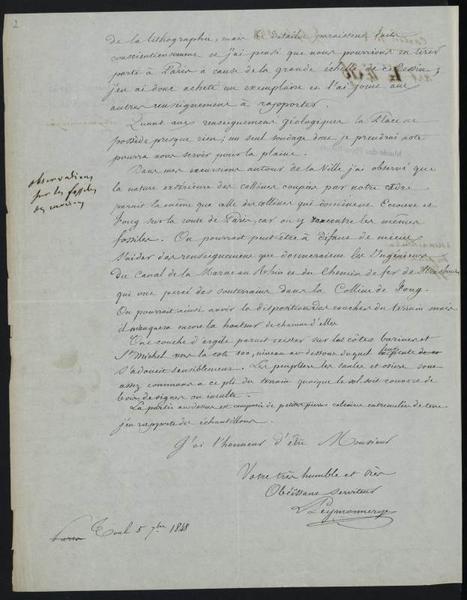 2
de la lithographie, mais les détails paraissent faits
consciencieusement et j'ai pensé que nous pourrions en tirer
parti à Paris à cause de la grande échelle de ce dessin ;
j'en ai donc acheté un exemplaire et l'ai joint aux
autres renseignements à rapporter.
Quant aux renseignements géologiques la Place ne
possède presque rien ; un seul sondage dont je prendrai note
pourra nous servir pour la plaine.
Dans mes excursions autour de la Ville j'ai observé que
observations
sur les fossiles
des environs
la nature extérieure des collines coupées par notre
parait la même que celle des collines qui dominent Ecrouve et
Foug sur la route de Paris, car on y rencontre les mêmes
fossiles. On pourrait peut-être à défaut de mieux
s'aider des renseignements que donneraient les Ingénieurs
du Canal de la Marne au Rhin et du Chemin de fer de Strasbourg
qui ont percé des souterrains dans la Colline de Foug.
On pourrait ainsi avoir la disposition des couches du terrain mais
il manquera encore la hauteur de chacune d'elles
Une couche d'argile parait exister sur les côtes barine et
St Michel vers la cote 300, niveau au-dessous duquel leur pente
s'adoucit sensiblement. Les peupliers les saules et osiers sont
assez communs à ce pli du terrain quoique le sol soit couvert de
bois de vignes ou inculte.
La partie au-dessus est composée de petites pierres calcaires entremêlées de terre
j'en rapporte des échantillons.
J'ai l'honneur d'être Monsieur
Votre très humble et très
Obéissant serviteur
Toul 5 7bre 1848